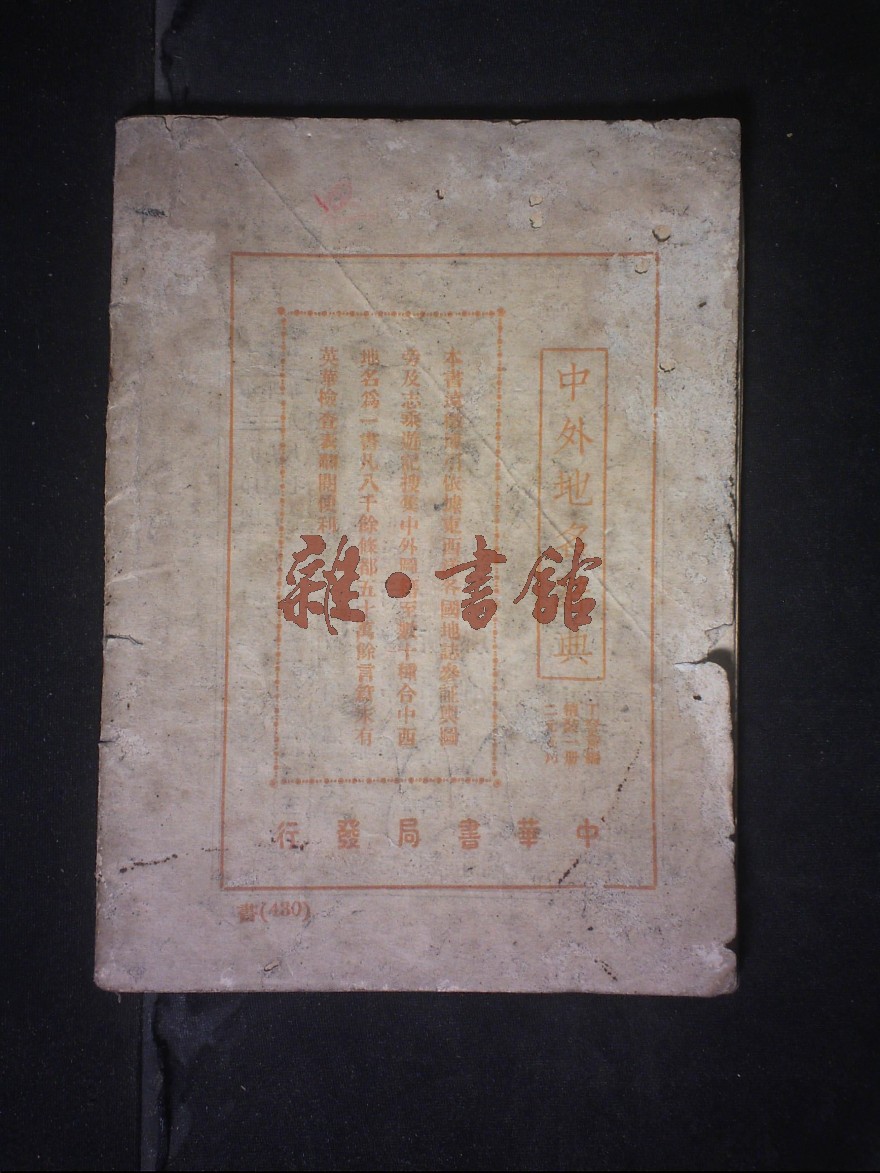 中外地名典
丁詧盦編
精裝一冊
二元
本書依據東西各國地誌參証輿圖
旁及志乘遊記搜集中外至數十種合中西
地名爲一書凡八千餘條都五十萬餘言算末有
英華檢查表翻閱便利
中華書局發行
書(480)
雜·書館